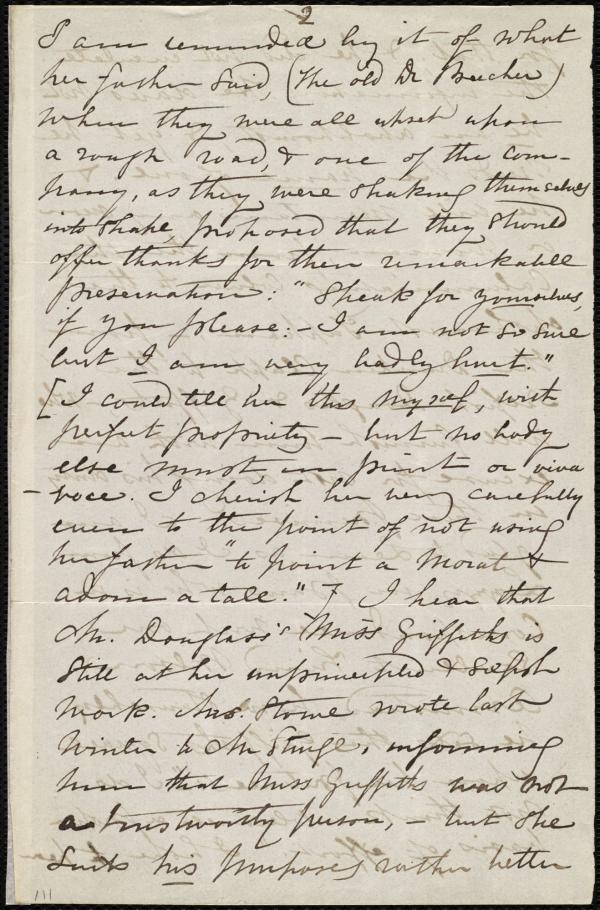 2
I am reminded by it of what
her father said, (the old Dr Beecher)
when they were all upset upon
a rough road, & one of the com-
pany, as they were shaking themselves
into shape, proposed that they should
offer thanks for their remarkable
preservation: "Speak for yourselves,
if you please: - I am not so sure
but I am very badly hurt."
[I could tell her this myself, with
perfect propriety - but no body
else must, in print or viva
- voce. I cherish her very carefully
even to the point of not using
her father "to point a moral &
adorn a tale."] I hear that
Mr. Douglass's Miss Griffiths is
still at her unprincipled & selfish
work. Mrs. Stowe wrote last
winter to Mr Sturge, informing
him that Miss Griffiths was not
a trustworthy person, - but she
suits his purposes rather better
111